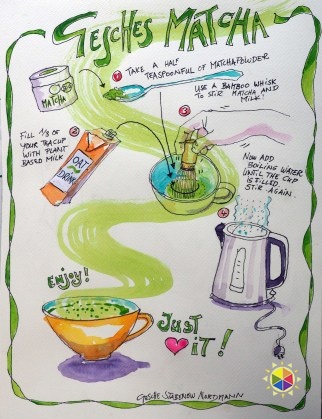 GESCHES MATCHA
MATCHA
1
TAKE A HALF
TEASPOONFUL OF MATCHAPOWDER
USE A BAMBOO WHISK
TO STIR MATCHA AND
MILK!
3
FILL 1/3 OF
YOUR TEACUP
WITH PLANT
BASED MILK
2
OAT
DRINK
NOW ADD
BOILING WATER
UNTIL THE CUP
IS FILLED.
STIR AGAIN.
4
ENJOY!
JUST
IT!
GESCHE